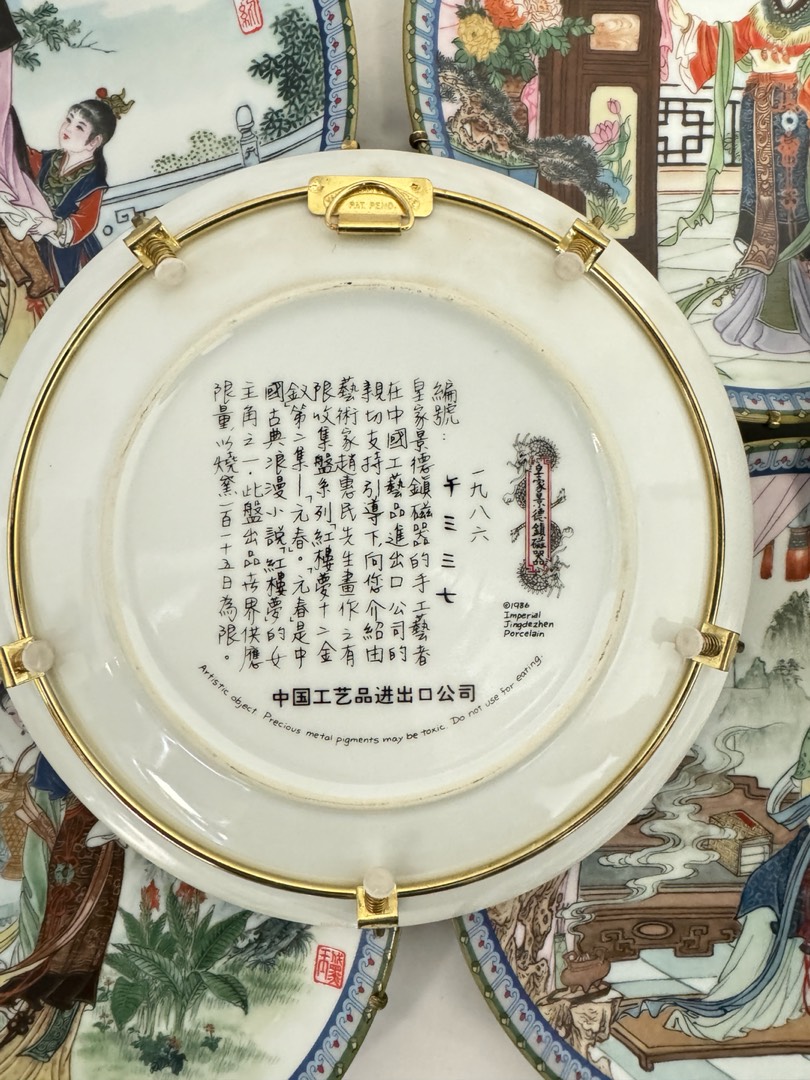 PAT. PEND.
皇家景德鎮磁器
©1986
Imperial
Jingdezhen
Porcelain
一九八六
午三三七
編號：
皇家景德鎮磁器的手工藝者
在中國工藝品進出口公司的
親切支持引導下，向您介紹由
藝術家趙惠民先生畫作之有
限收集盤系列「紅樓夢十二金
釵」第二集—「元春」。「元春」是中
國古典浪漫小說「紅樓夢」的女
主角之一。此盤出品世界供應
限量，以燒窯一百一十五日為限。
中国工艺品进出口公司
Artistic object. Precious metal pigments may be toxic. Do not use for eating.